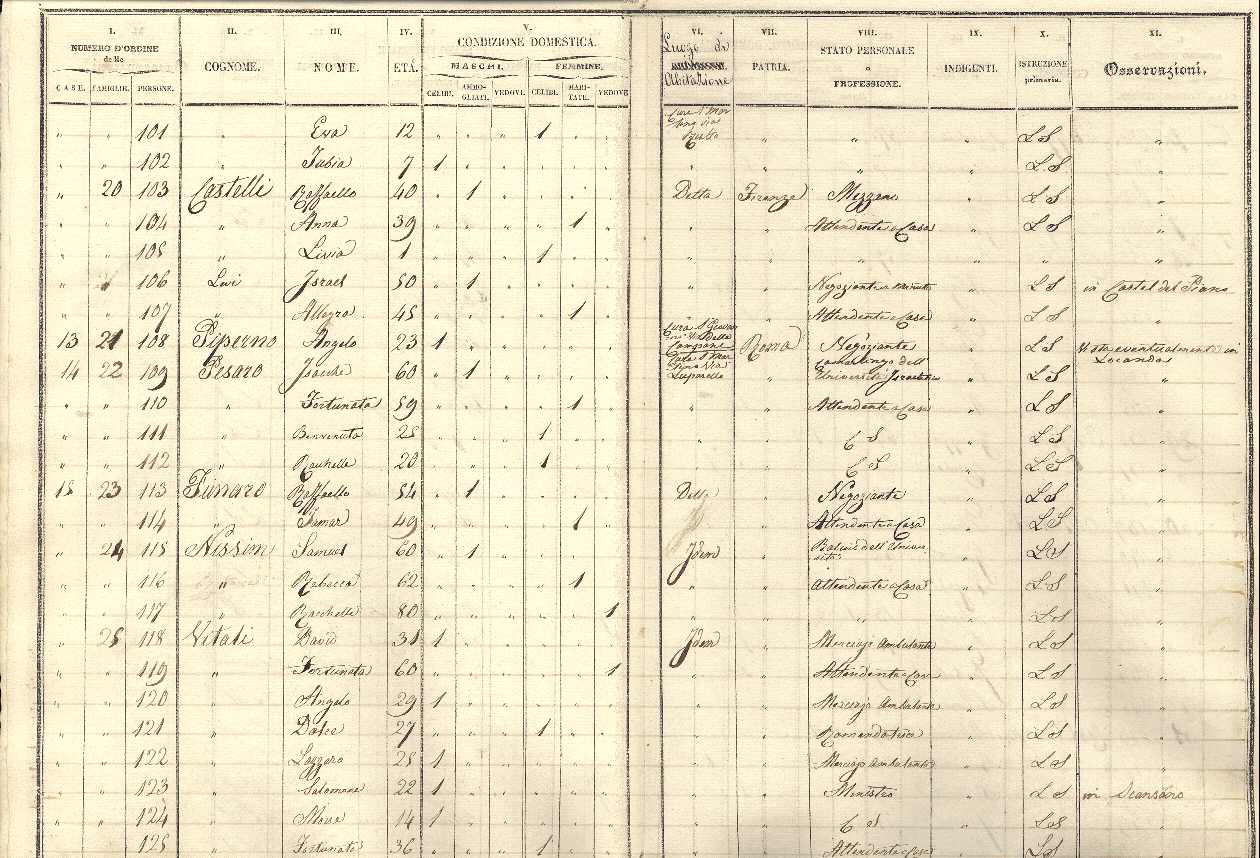 I. II. III. IV. V. VI. VII. VIII. IX. X. XI.
NUMERO D'ORDINE delle COGNOME. NOME. ETÁ. CONDIZIONE DOMESTICA. Luogo di Abitazione PATRIA. STATO PERSONALE o PROFESSIONE. INDIGENTI. ISTRUZIONE primaria. Osservazioni.
MASCHI. FEMMINE.
CASE. FAMIGLIE. PERSONE. CELIBI. AMMOGLIATI. VEDOVI. CELIBI. MARITATE. VEDOVE
" " 101 " Eva 12 " " " 1 " " " " " L S "
" " 102 " 7 1 " " " " " " " " " L S "
" 20 103 Castelli Raffaello 40 " 1 " " " " Detta Firenze " L S "
" " 104 " Anna 39 " " " " 1 " " " Attendente a Casa " L S "
" " 105 " Livia 1 " " " 1 " " " " " " " "
" " 106 Levi Israel 50 " 1 " " " " " " Negoziante a minuto " L S in Castel del Piano
" " 107 " Allegra 45 " " " " 1 " " " Attendente a Casa " L S "
13 21 108 Piperno Angelo 23 1 " " " " " Cura S Giovanni Via delle Campane Roma Negoziante " L S Vista eventualmente in Locanda
14 22 109 Pesaro 60 " 1 " " " " Camarlingo dell' Università Israelitica " L S "
" " 110 " Fortunata 59 " " " " 1 " " " Attendente a Casa " L S "
" " 111 " Benvenuta 25 " " " 1 " " " " C S " L S "
" " 112 " Rachelle 20 " " " 1 " " " " C S " L S "
15 23 113 Funaro Raffaello 54 " 1 " " " " Detta " Negoziante " L S "
" " 114 " Tamar 49 " " " " 1 " " " Attendente a Casa " L S "
" 24 115 Nissim Samuel 60 " 1 " " " " Idem " dell' Università " L S "
" " 116 " Rebecca 62 " " " " 1 " " " Attendente a Casa " L S "
" " 117 " Racchelle 80 " " " " " 1 " " " " L S "
" 25 118 Vitali David 31 1 " " " " " Idem " Merciajo Ambulante " L S "
" " 119 " Fortunata 60 " " " " " 1 " " Attendente a Casa " L S "
" " 120 " Angelo 29 1 " " " " " " " Merciajo Ambulante " L S "
" " 121 " Dolce 27 " " " 1 " " " " " L S "
" " 122 " Lazzero 25 1 " " " " " " " Merciajo Ambulante " L S "
" " 123 " Salomone 22 1 " " " " " " " Ministro " L S in Scansano
" " 124 " Moise 14 1 " " " " " " " C S " L S "
" " 125 " Fortunata 36 " " " 1 " " " " Attendente a Casa " L S "